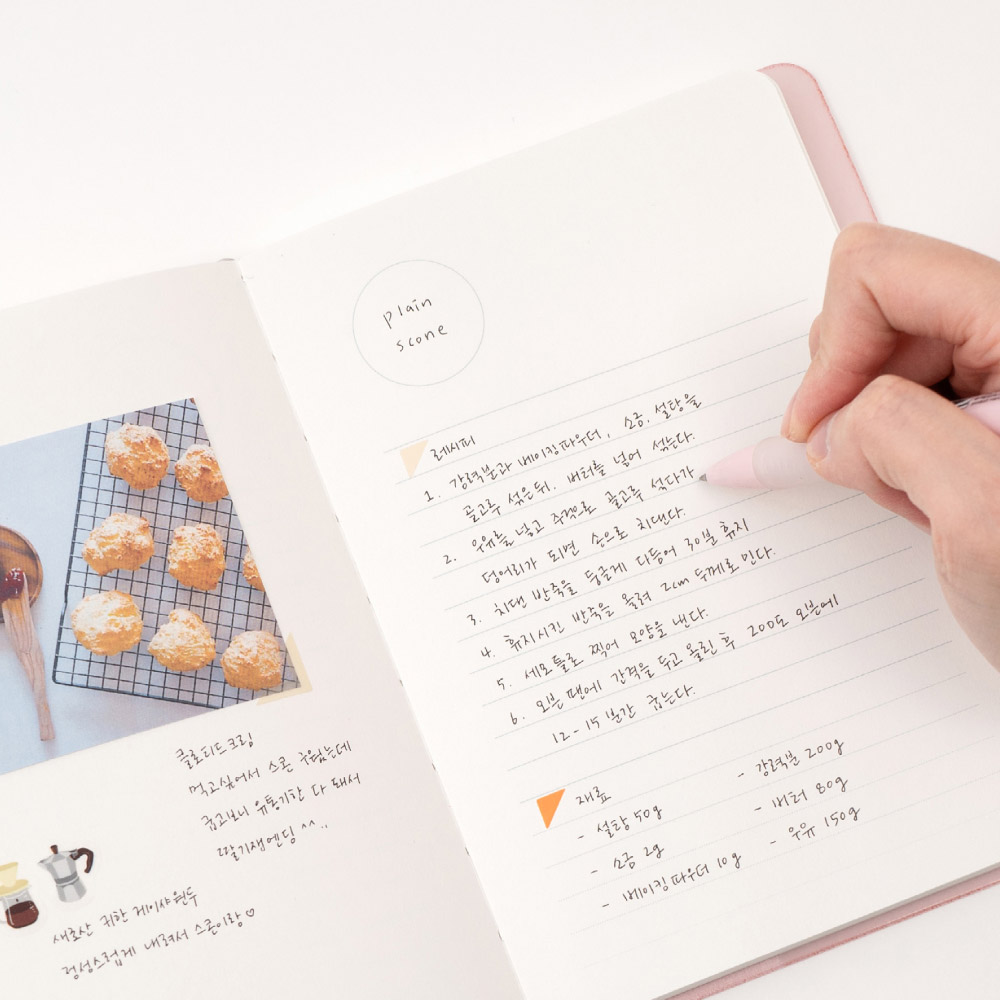 클로티드크림
먹고싶어서 스콘 구웠는데
굽고보니 유통기한 다 돼서
딸기잼엔딩 ^^..
새로산 귀한 게이샤원두
정성스럽게 내려서 스콘이랑♡
plain
scone
레시피
1. 강력분과 베이킹파우더, 소금, 설탕을
골고루 섞은뒤, 버터를 넣어 섞는다.
2. 우유를 넣고 주걱으로 골고루 섞다가
덩어리가 되면 손으로 치댄다.
3. 치댄 반죽을 둥글게 다듬어 30분 휴지
4. 휴지시킨 반죽을 올려 2cm 두께로 민다.
5. 세모 틀로 찍어 모양을 낸다.
6. 오븐 팬에 간격을 두고 올린 후 200도 오븐에
12-15분간 굽는다.
재료
- 설탕 50g
- 소금 2g
- 베이킹파우더 10g
- 강력분 200g
- 버터 80g
- 우유 150g